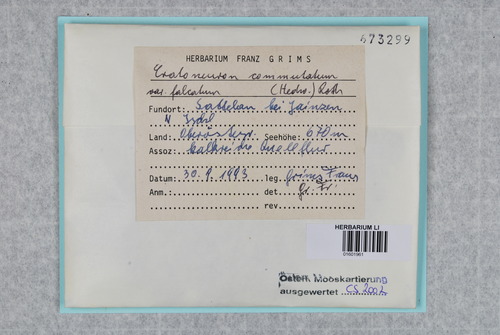 673299
HERBARIUM FRANZ GRIMS
Cratoneuron commutatum
var. falcatum (Hedw.) Roth
Fundort: bei Jainzen
N Ischl
Land: Oberösterr. Seehöhe: 670 m
Assoz: kalkreiche Quellflur
Datum: 30.9.1993 leg. Grims Franz
Anm.: det. Gr. Fr.
rev.
HERBARIUM LI
01601961
Österr. Mooskartierung
ausgewertet CS 2002